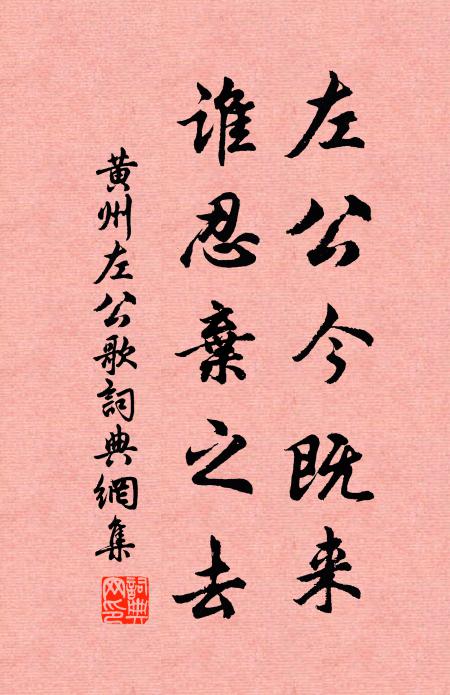 左公今既来
谁忍棄之去
黄州左公歌詞典網集
詞典網印